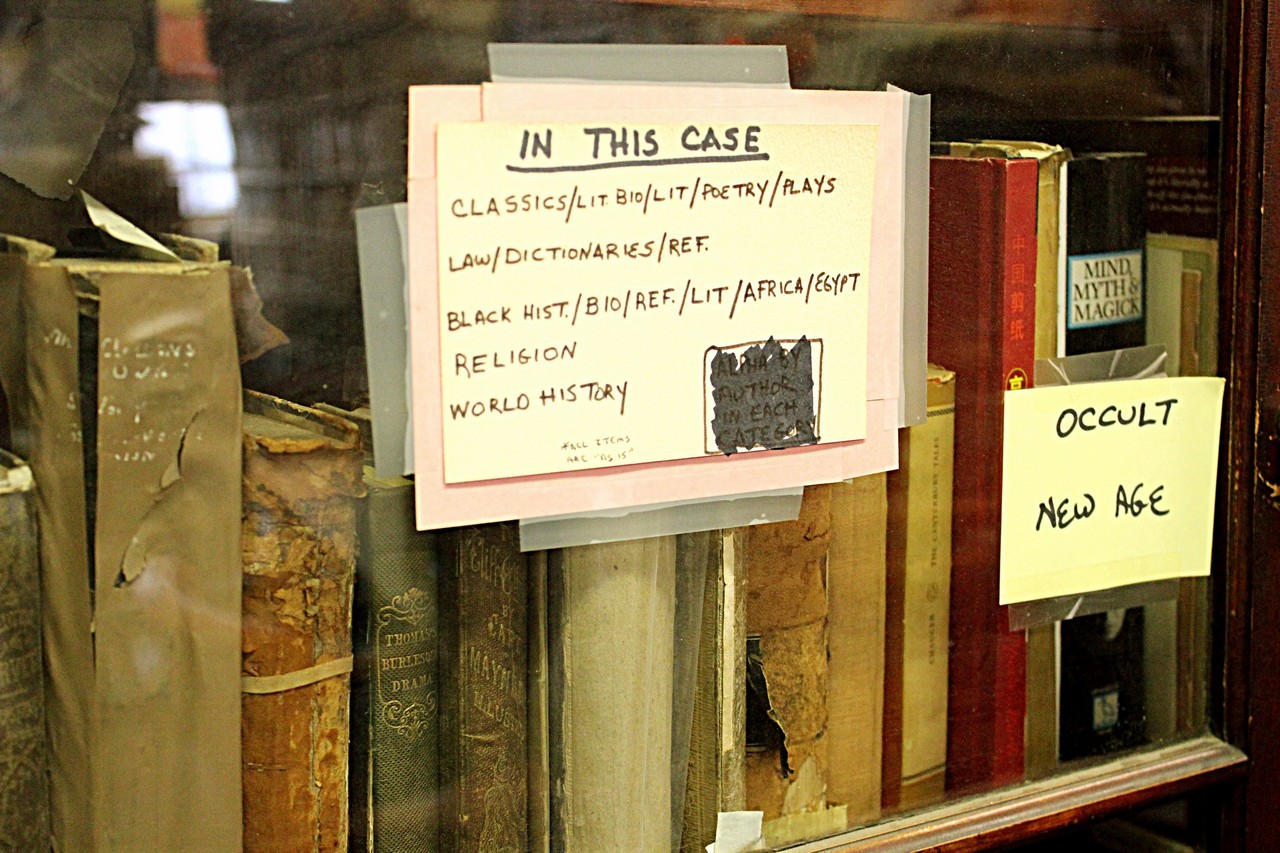 IN THIS CASE
CLASSICS/LIT. BIO/LIT/POETRY/PLAYS
LAW/DICTIONARIES/REF.
BLACK HIST./BIO/REF./LIT/AFRICA/EGYPT
RELIGION
WORLD HISTORY
ALPHA BY
AUTHOR
IN EACH
CATEGORY
*ALL ITEMS
ARE "AS IS"
OCCULT
NEW AGE
MIND,
MYTH &
MAGICK
中国剪纸
THOMAS
BURLESQUE
DRAMA
LIFE
BY
MAYHEW
THE CANTERBURY TALES
CHAUCER